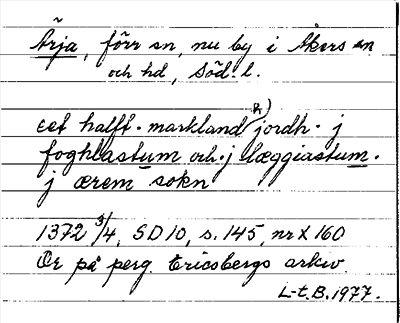 Ärja, förr sn, nu by i Åkers sn
och hd, Söd. l.
eet halft · markland R) jordh · j
foghlastum och · j læggiastum ·
j ærem sokn
1372 3/4, SD 10, s. 145, nr X 160
Or på perg. Ericsbergs arkiv.
L-t. B. 1977.